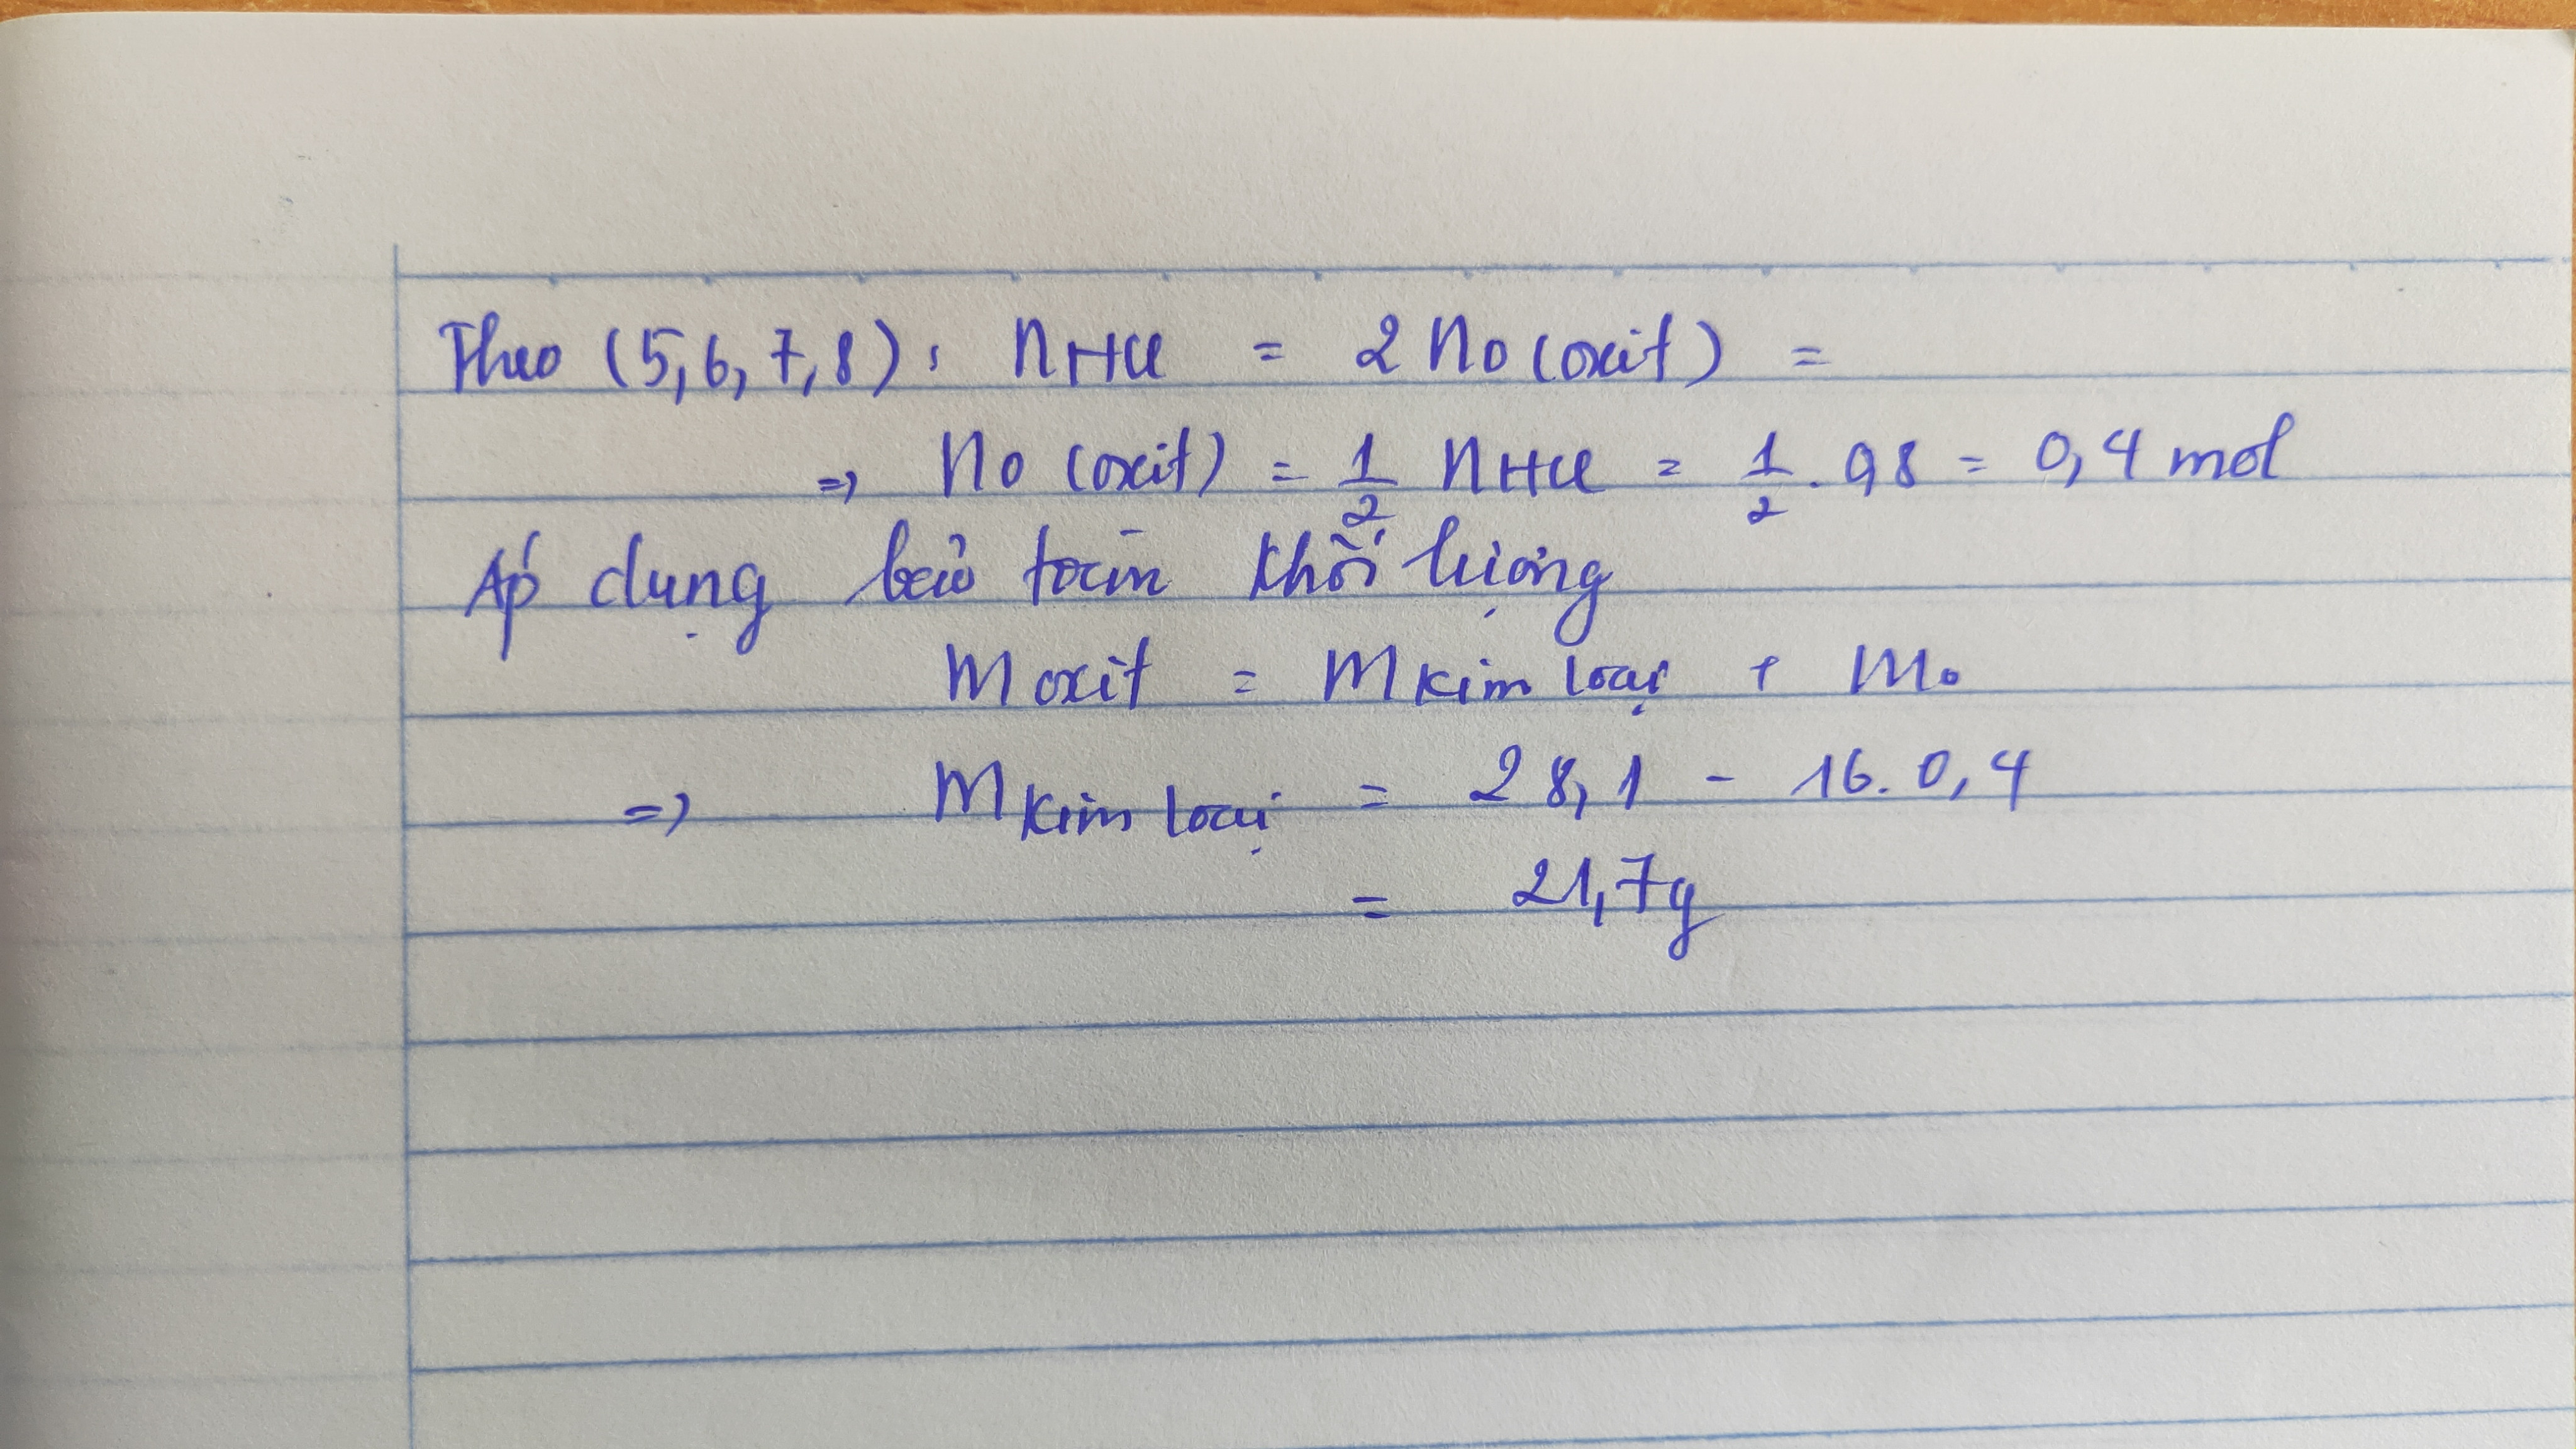 Theo (5,6,7,8): nHCl = 2 nO (oxit) =
=> nO (oxit) = 1/2 nHCl = 1/2 . 0,8 = 0,4 mol
Áp dụng bảo toàn khối lượng
m oxit = m kim loại + mO
=> m kim loại = 28,1 - 16. 0,4
= 21,7g